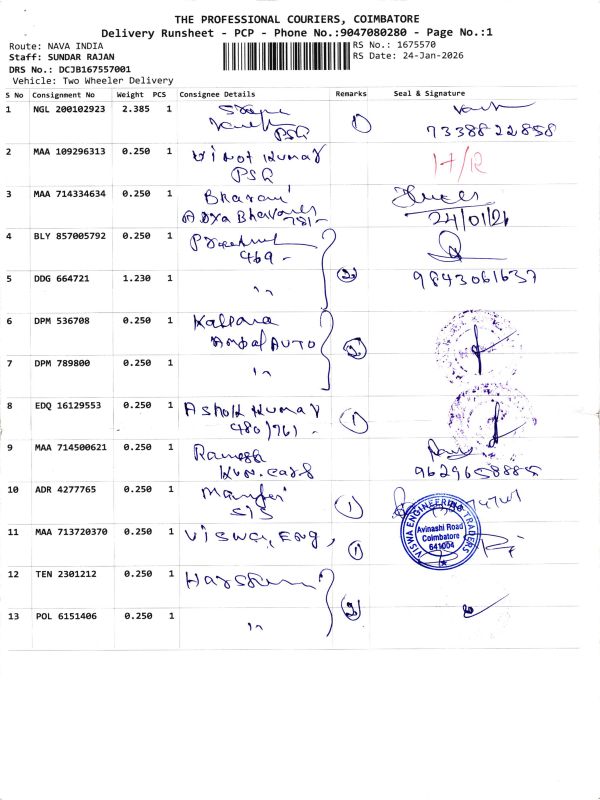 THE PROFESSIONAL COURIERS, COIMBATORE
Delivery Runsheet - PCP - Phone No.:9047080280 - Page No.:1
Route: NAVA INDIA
Staff: SUNDAR RAJAN
DRS No.: DCJB167557001
Vehicle: Two Wheeler Delivery
RS No.: 1675570
RS Date: 24-Jan-2026
S No Consignment No Weight PCS Consignee Details Remarks Seal & Signature
1 NGL 200102923 2.385 1 PSG 1
7338822858
2 MAA 109296313 0.250 1 Vinot Kumar
PSG
3 MAA 714334634 0.250 1 Bharani
781-
24/01/26
4 BLY 857005792 0.250 1
469 -
2
5 DDG 664721 1.230 1 " 9843061637
6 DPM 536708 0.250 1 Kalpana
AUTO
2
7 DPM 789800 0.250 1 "
8 EDQ 16129553 0.250 1 Ashok Kumar 1
480/761 -
9 MAA 714500621 0.250 1 Ramesh
9629658885
10 ADR 4277765 0.250 1 1
11 MAA 713720370 0.250 1 Viswa, Eng, 1
VISWA ENGINEERING TRADERS
Avinashi Road
Coimbatore
641004
12 TEN 2301212 0.250 1
2
13 POL 6151406 0.250 1 "